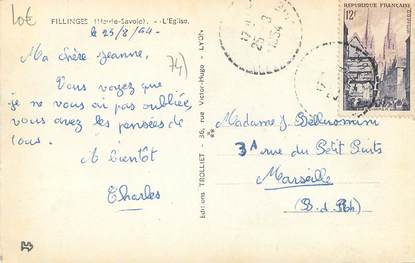 10€
FILLINGES (Haute-Savoie). - L'Eglise.
le 25/8/54-
Ma chère Jeanne,
74)
Vous voyez que
je ne vous ai pas oubliée,
vous avez les pensées de
tous.
A bientôt
Charles
Editions TROLLIET - 36, rue Victor-Hugo - LYON
REPUBLIQUE FRANÇAISE
12F
17
25 - 8
1954
17
Madame J.
31 rue du Petit Puits
Marseille
(B. d. Rh)